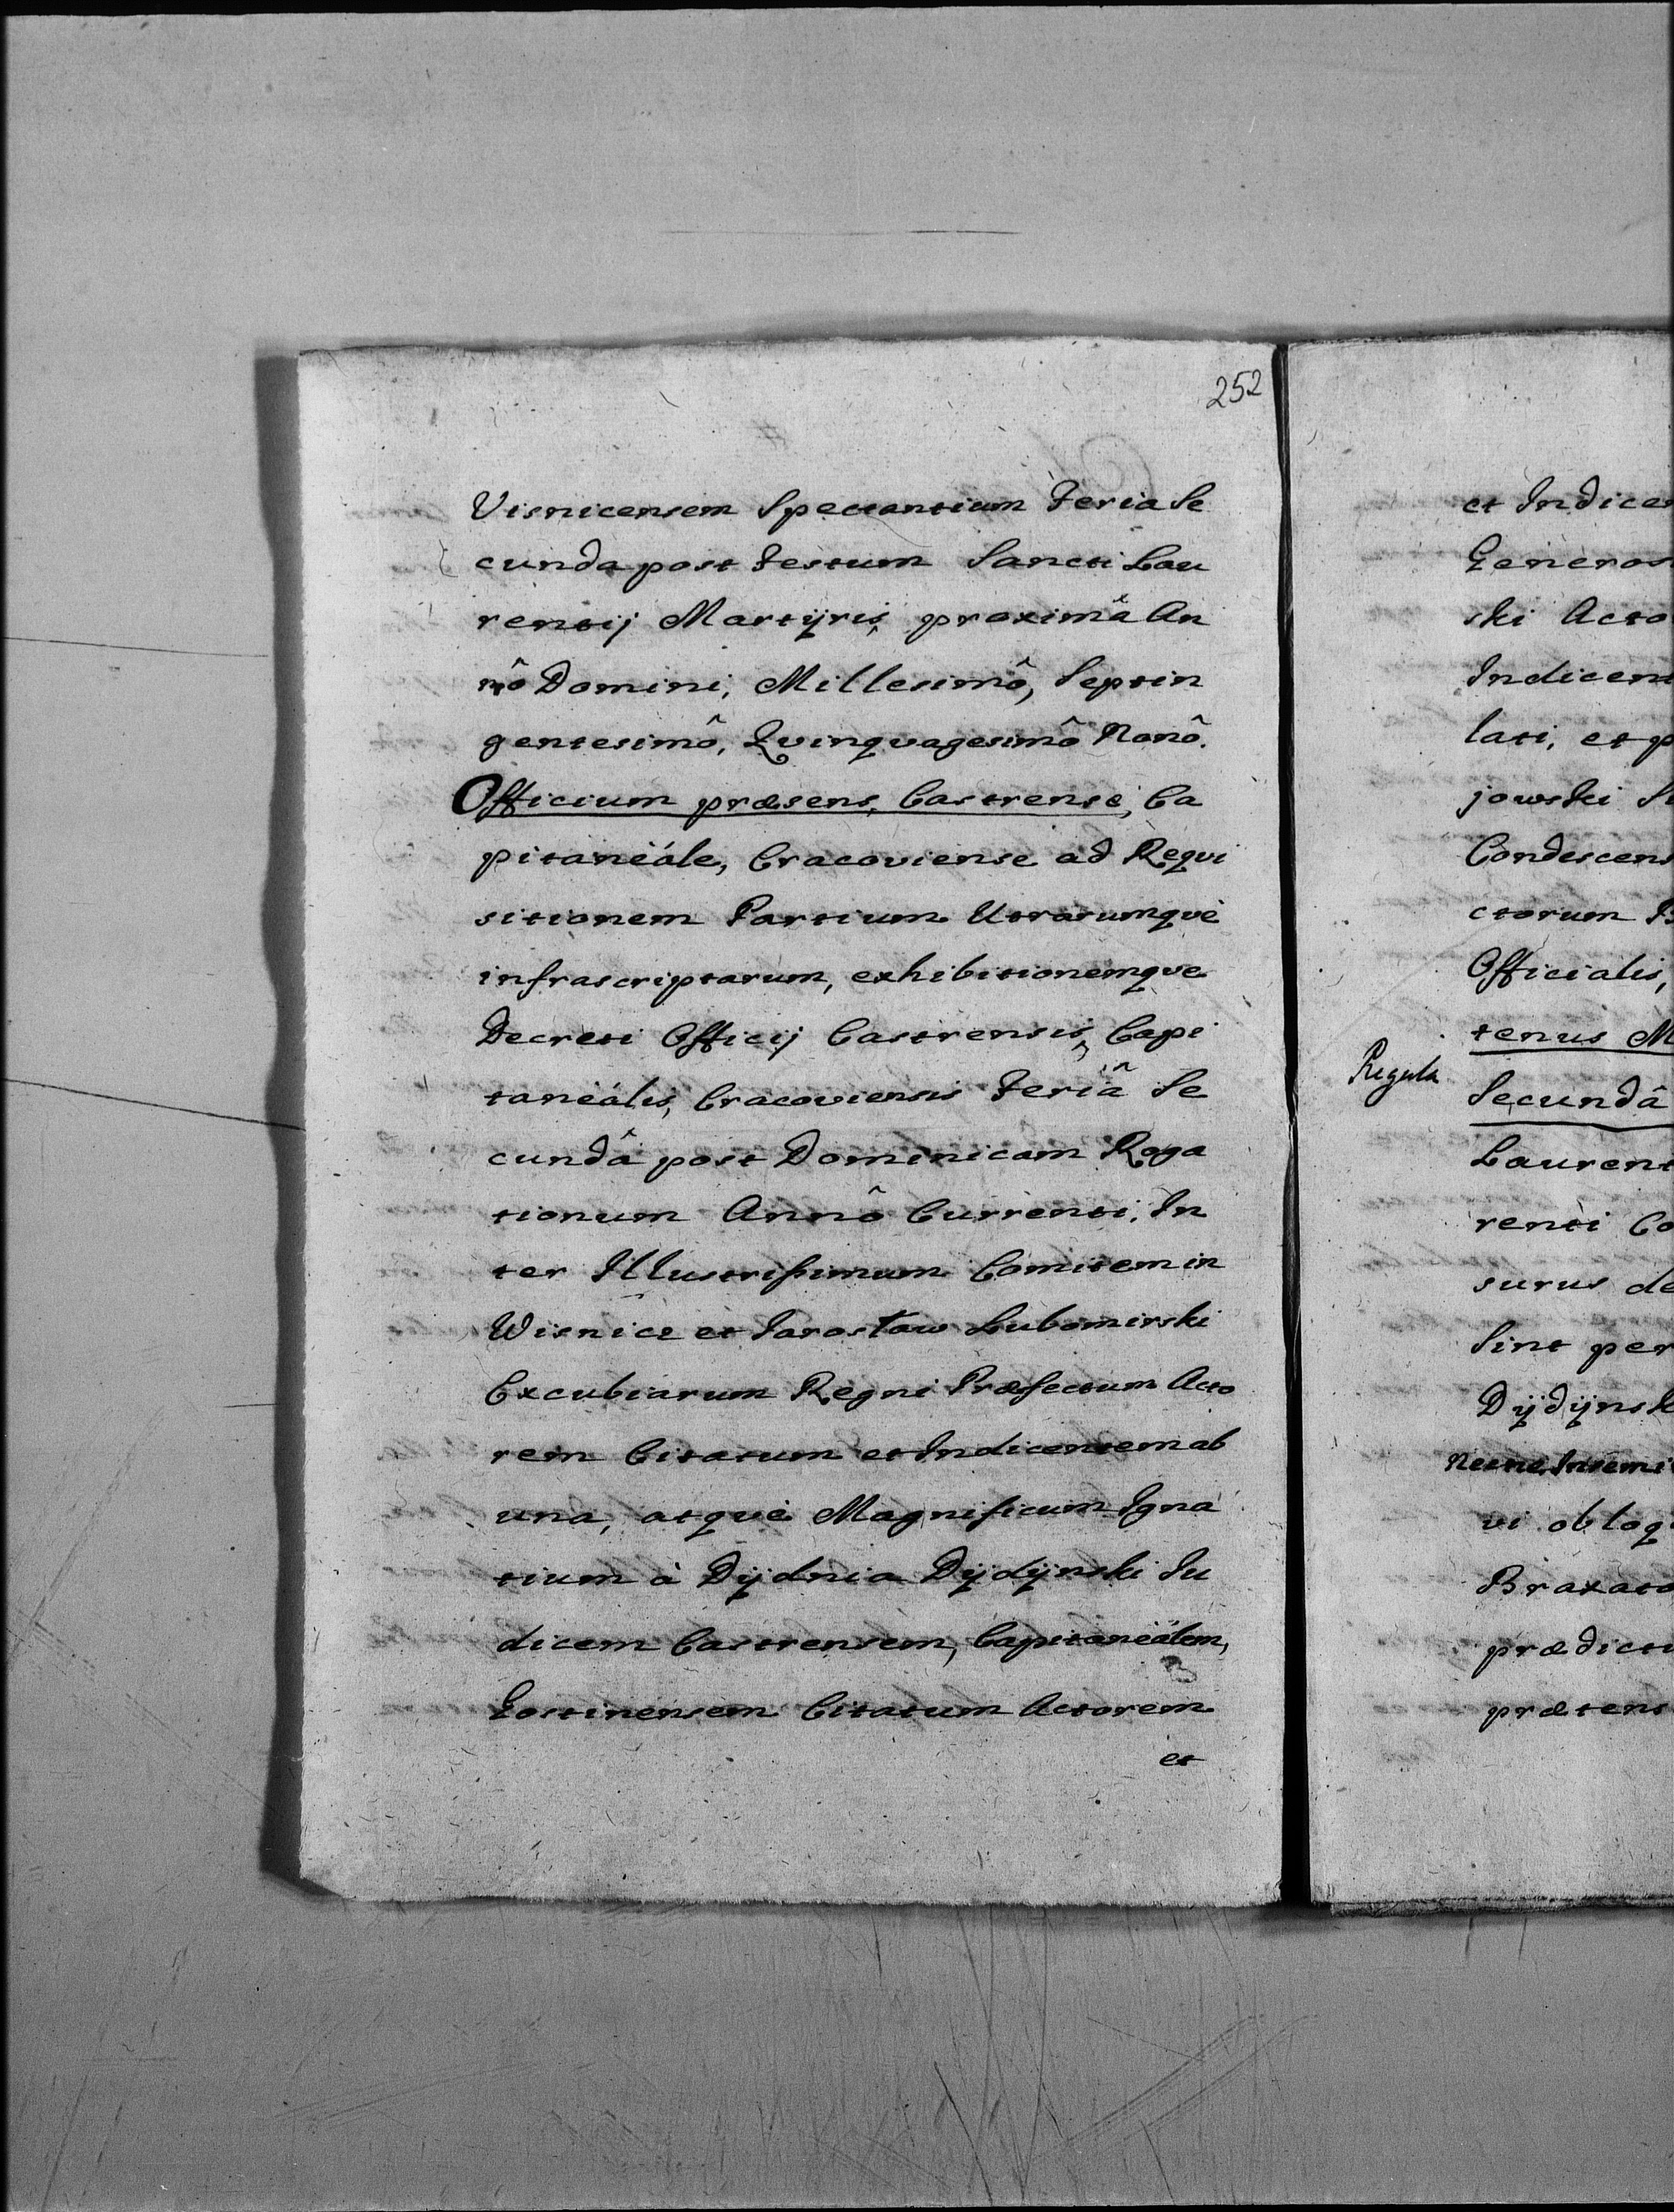 252
Visnicensem Spectantium Feria Se
cunda post Festum Sancti Lau
rentij Martÿris, proximâ An
nô Domini, Millesimô, Septin
gentesimô, Qvinqvagesimô Nonô.
Officium præsens, Castrense, Ca
pitaneále, Cracoviense ad Reqvi
sitionem Partium Utrarumqvè
infrascriptarum, exhibitionemqve
Decreti Officij Castrensis, Capi
taneális, Cracoviensis Feriâ Se
cundâ post Dominicam Roga
tionum Annô Currenti, In
ter Illustrissimum Comitem in
Wisnicz et Jarosław Lubomirski
Excubiarum Regni Præfectum Acto
rem Citatum et Indicentem ab
una, atqvè Magnificum Igna
tium à Dÿdnia Dÿdÿnski Iu
dicem Castrensem, Capitaneálem,
Gostinensem Citatum Actorem
et
et Indicen
Generos
ski Acto
Indicen
lati, et p
jowski S
Condescens
ctorum
Officialis,
tenus M
Regula
Secundâ
Laurent
renti Co
surus de
Sint per
Dÿdÿnsk
Necne Intemi
vi obloq
Braxato
prædicti
prætens